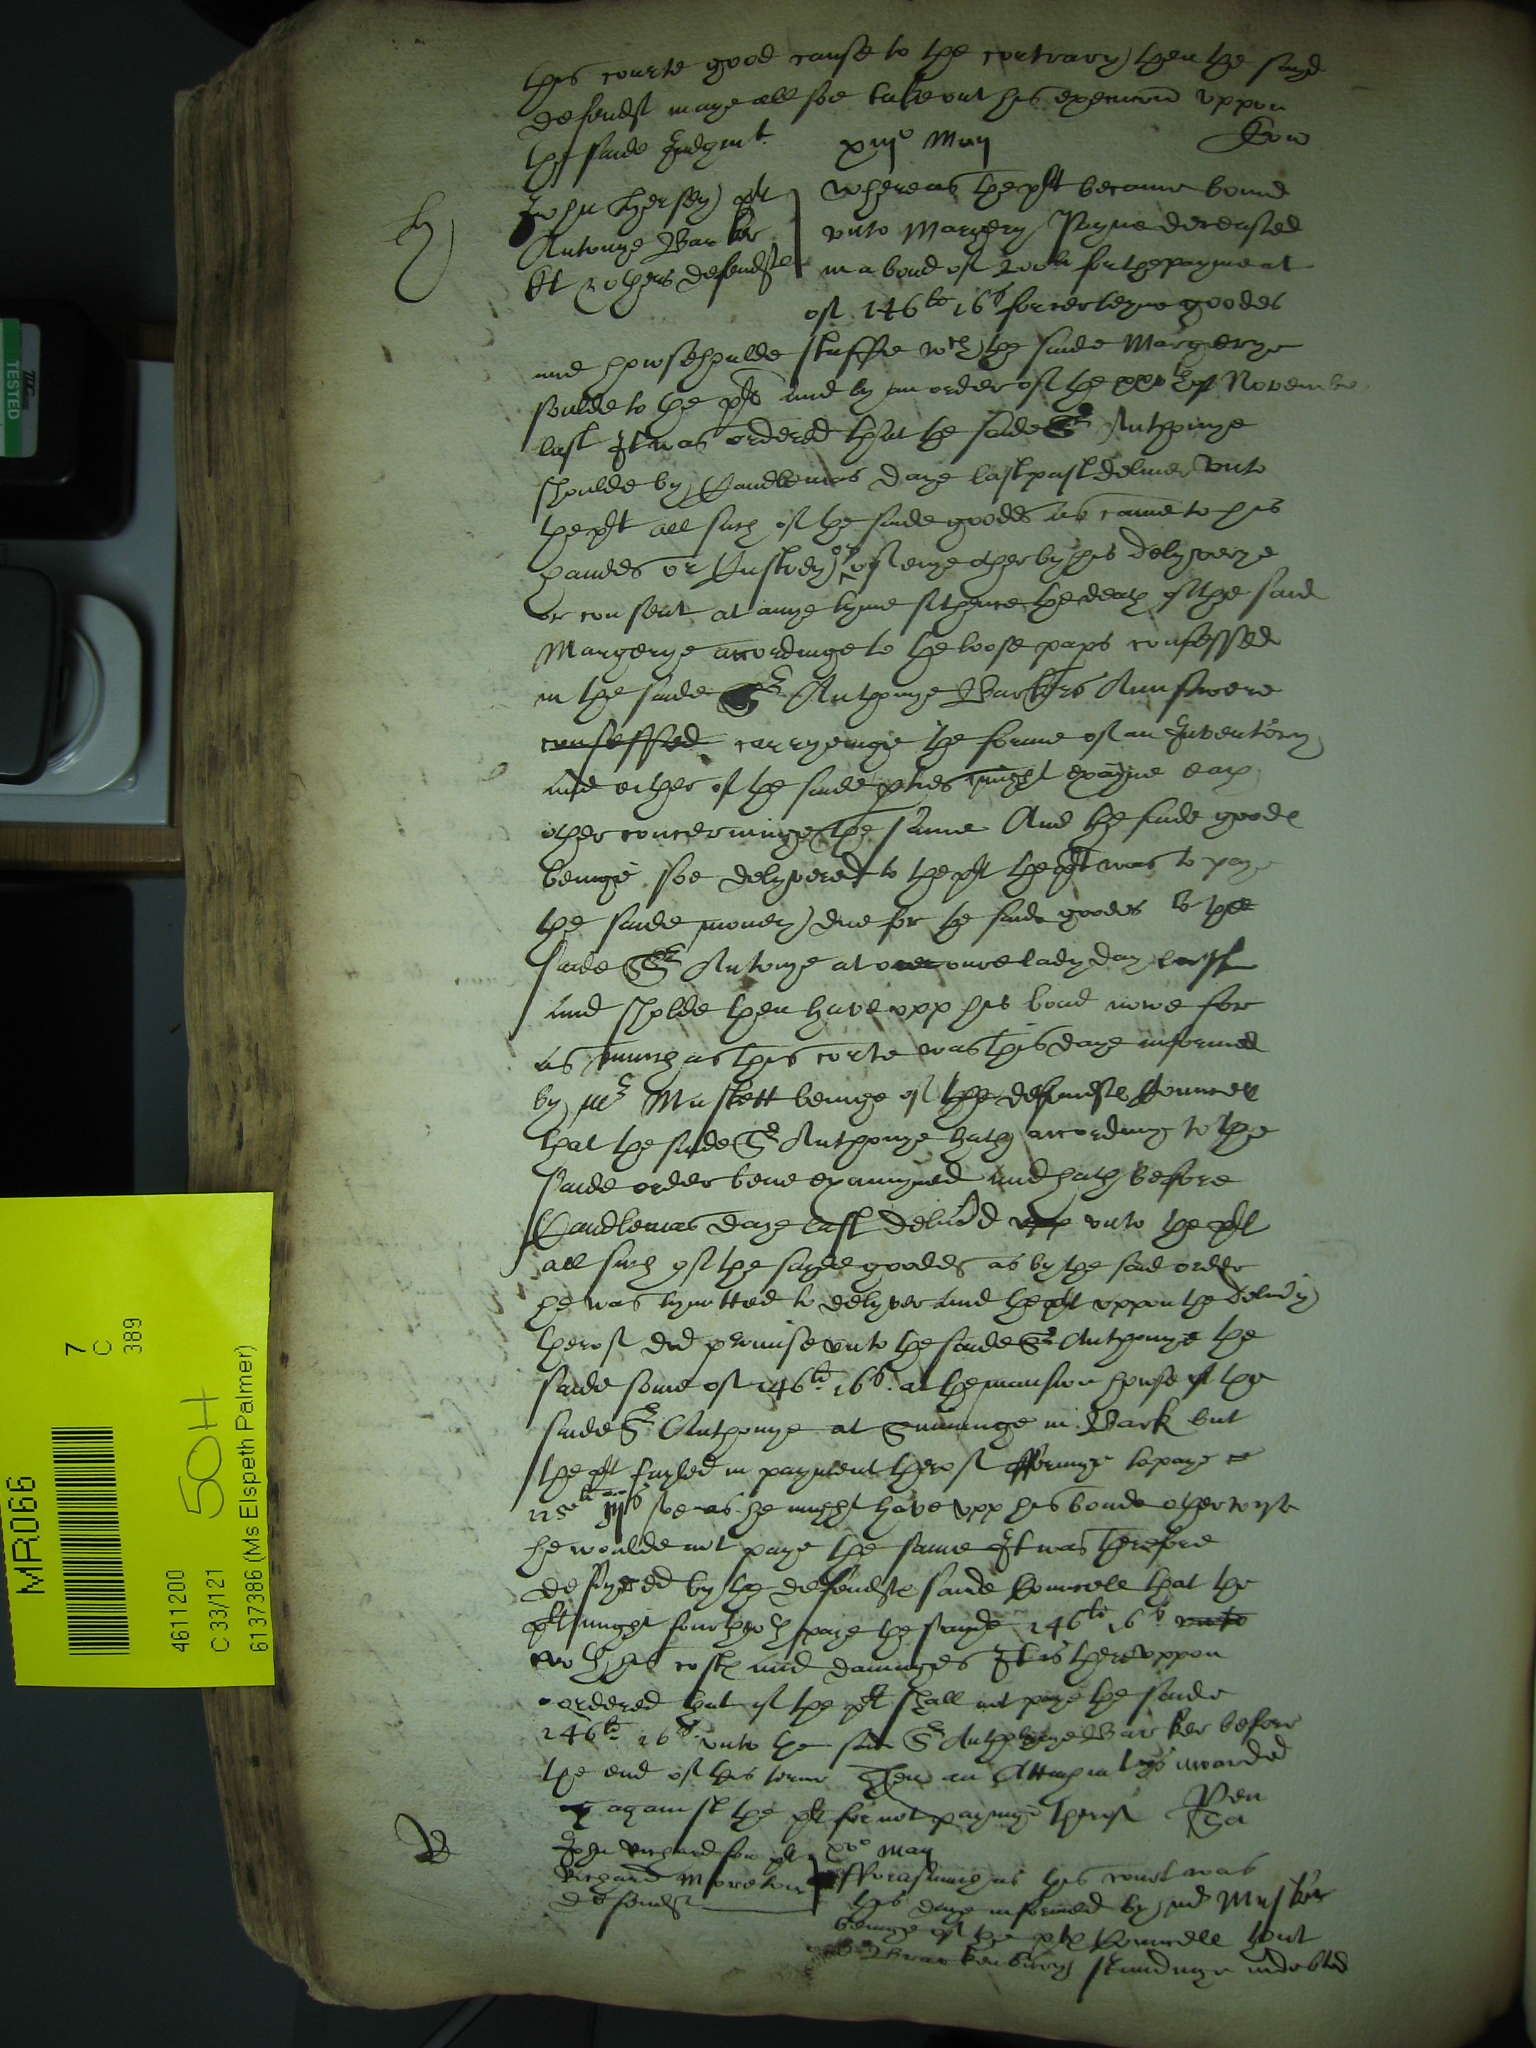 this courte good cause to the contrary then the sayd
defendt maye allsoe take out his execucion uppon
the saide Judgmt. xiijo Maij
John Hersey plt
Antonye Barker
kt & others defendts
whereas the plt became bound
unto Margery Payne deceased
in a bond of 200li for the payment
of 146li 16s for certeyne goodes
and howsehoulde stuffe wch the saide Margerye
soulde to the plt and by an order of the xxvth of November
last It was ordered that the saide Sr Anthonye
shoulde by Candlemas daye last past deliver unto
the plt all such of the saide goodes as came to his
handes or Custody or of enye other by his delyverye
or consent at anye tyme sithence the death of the said
Margerye accordinge to the loose paps confessed
in the saide Sr Anthonye Barkers Aunswere
confessed carryenge the forme of an Inventory
and either of the saide pties might examine each
other concerninge the same And the saide goodes
beinge soe delyvered to the plt the plt was to paye
the saide money due for the saide goodes to the
saide Sr Antonye at our oure lady day last
and sholde then have upp his bond nowe for
as much as this corte was this daye informed
by Mr Muskett beinge of the defendts Councell
that the saide Sr Anthonye hath according to the
saide order bene examyned and hath before
Candlemas daye last delivd upp unto the plt
all such of the sayde goodes as by the said order
he was lymitted to delyver and the plt uppon the delivy
therof did promise unto the saide Sr Anthonye the
saide some of 146li. 16s. at the mansion house of the
saide Sr Anthonye at Sunninge in Bark but
the plt fayled in payment therof offeringe to paye
125li iijs soe as he might have upp his bonde otherwyse
he woulde not paye the same It was therefore
desyred by the defendts saide Councell that the
plt might fourthwth paye the sayde 146li 16s unto
wth his costs and damages It is thereuppon
ordered that yf the plt shall not paye the saide
146li. 16s. unto the said Sr Anthonye Barker before
the end of this terme Then an Attachmt is awarded
against the plt for not payinge therof
John plt xvo May
Richard Moreton
defendt
Fforasmuch as this court was
this daye informed by Mr Muskett
beinge of the plts Councell that
standinge indebted
MR066
7
C
389
50H
4611200
C 33/121
6137386 (Ms Elspeth Palmer)
TESTED